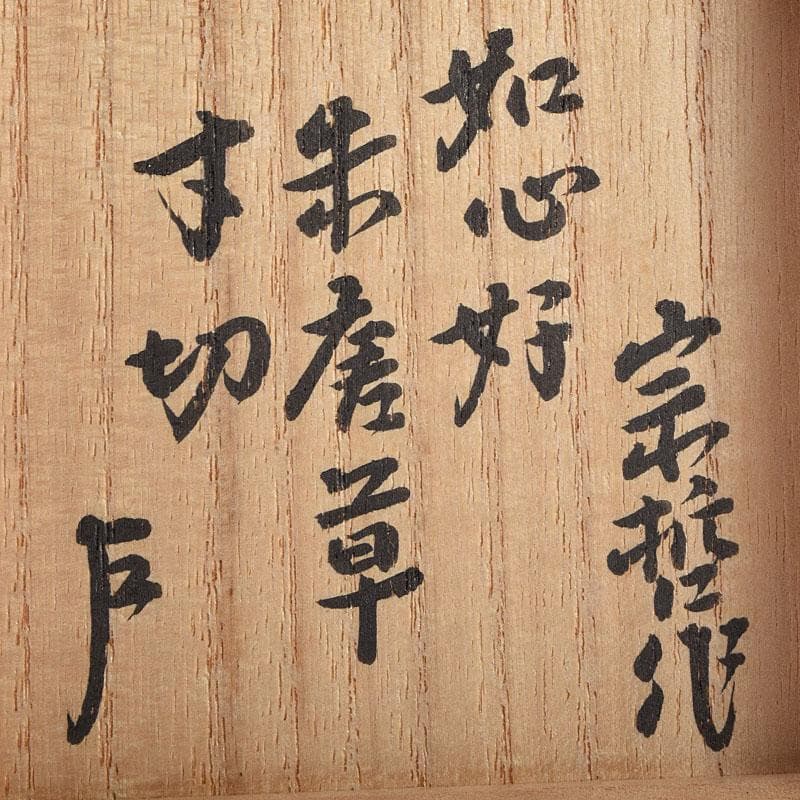 宗哲作
如心好
朱唐草
寸切